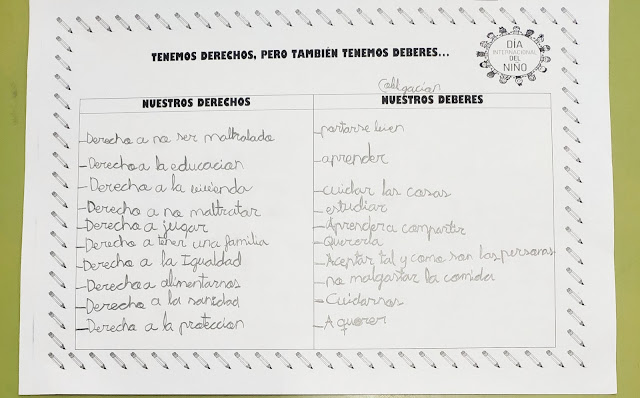 TENEMOS DERECHOS, PERO TAMBIÉN TENEMOS DEBERES...
DÍA
INTERNACIONAL
DEL
NIÑO
NUESTROS DERECHOS
-Derecho a no ser maltratado
-Derecho a la educacion
-Derecho a la vivienda
-Derecho a no maltratar
-Derecho a jugar
-Derecho a tener una familia
-Derecho a la Igualdad
-Derecho a alimentarnos
-Derecho a la sanidad
-Derecho a la proteccion
NUESTROS DEBERES
-portarse bien
-aprender
-cuidar las cosas
-estudiar
-Aprender a compartir
-Quererla
-Aceptar tal y como son las personas
-no malgastar la comida
-Cuidarnos
-A querer